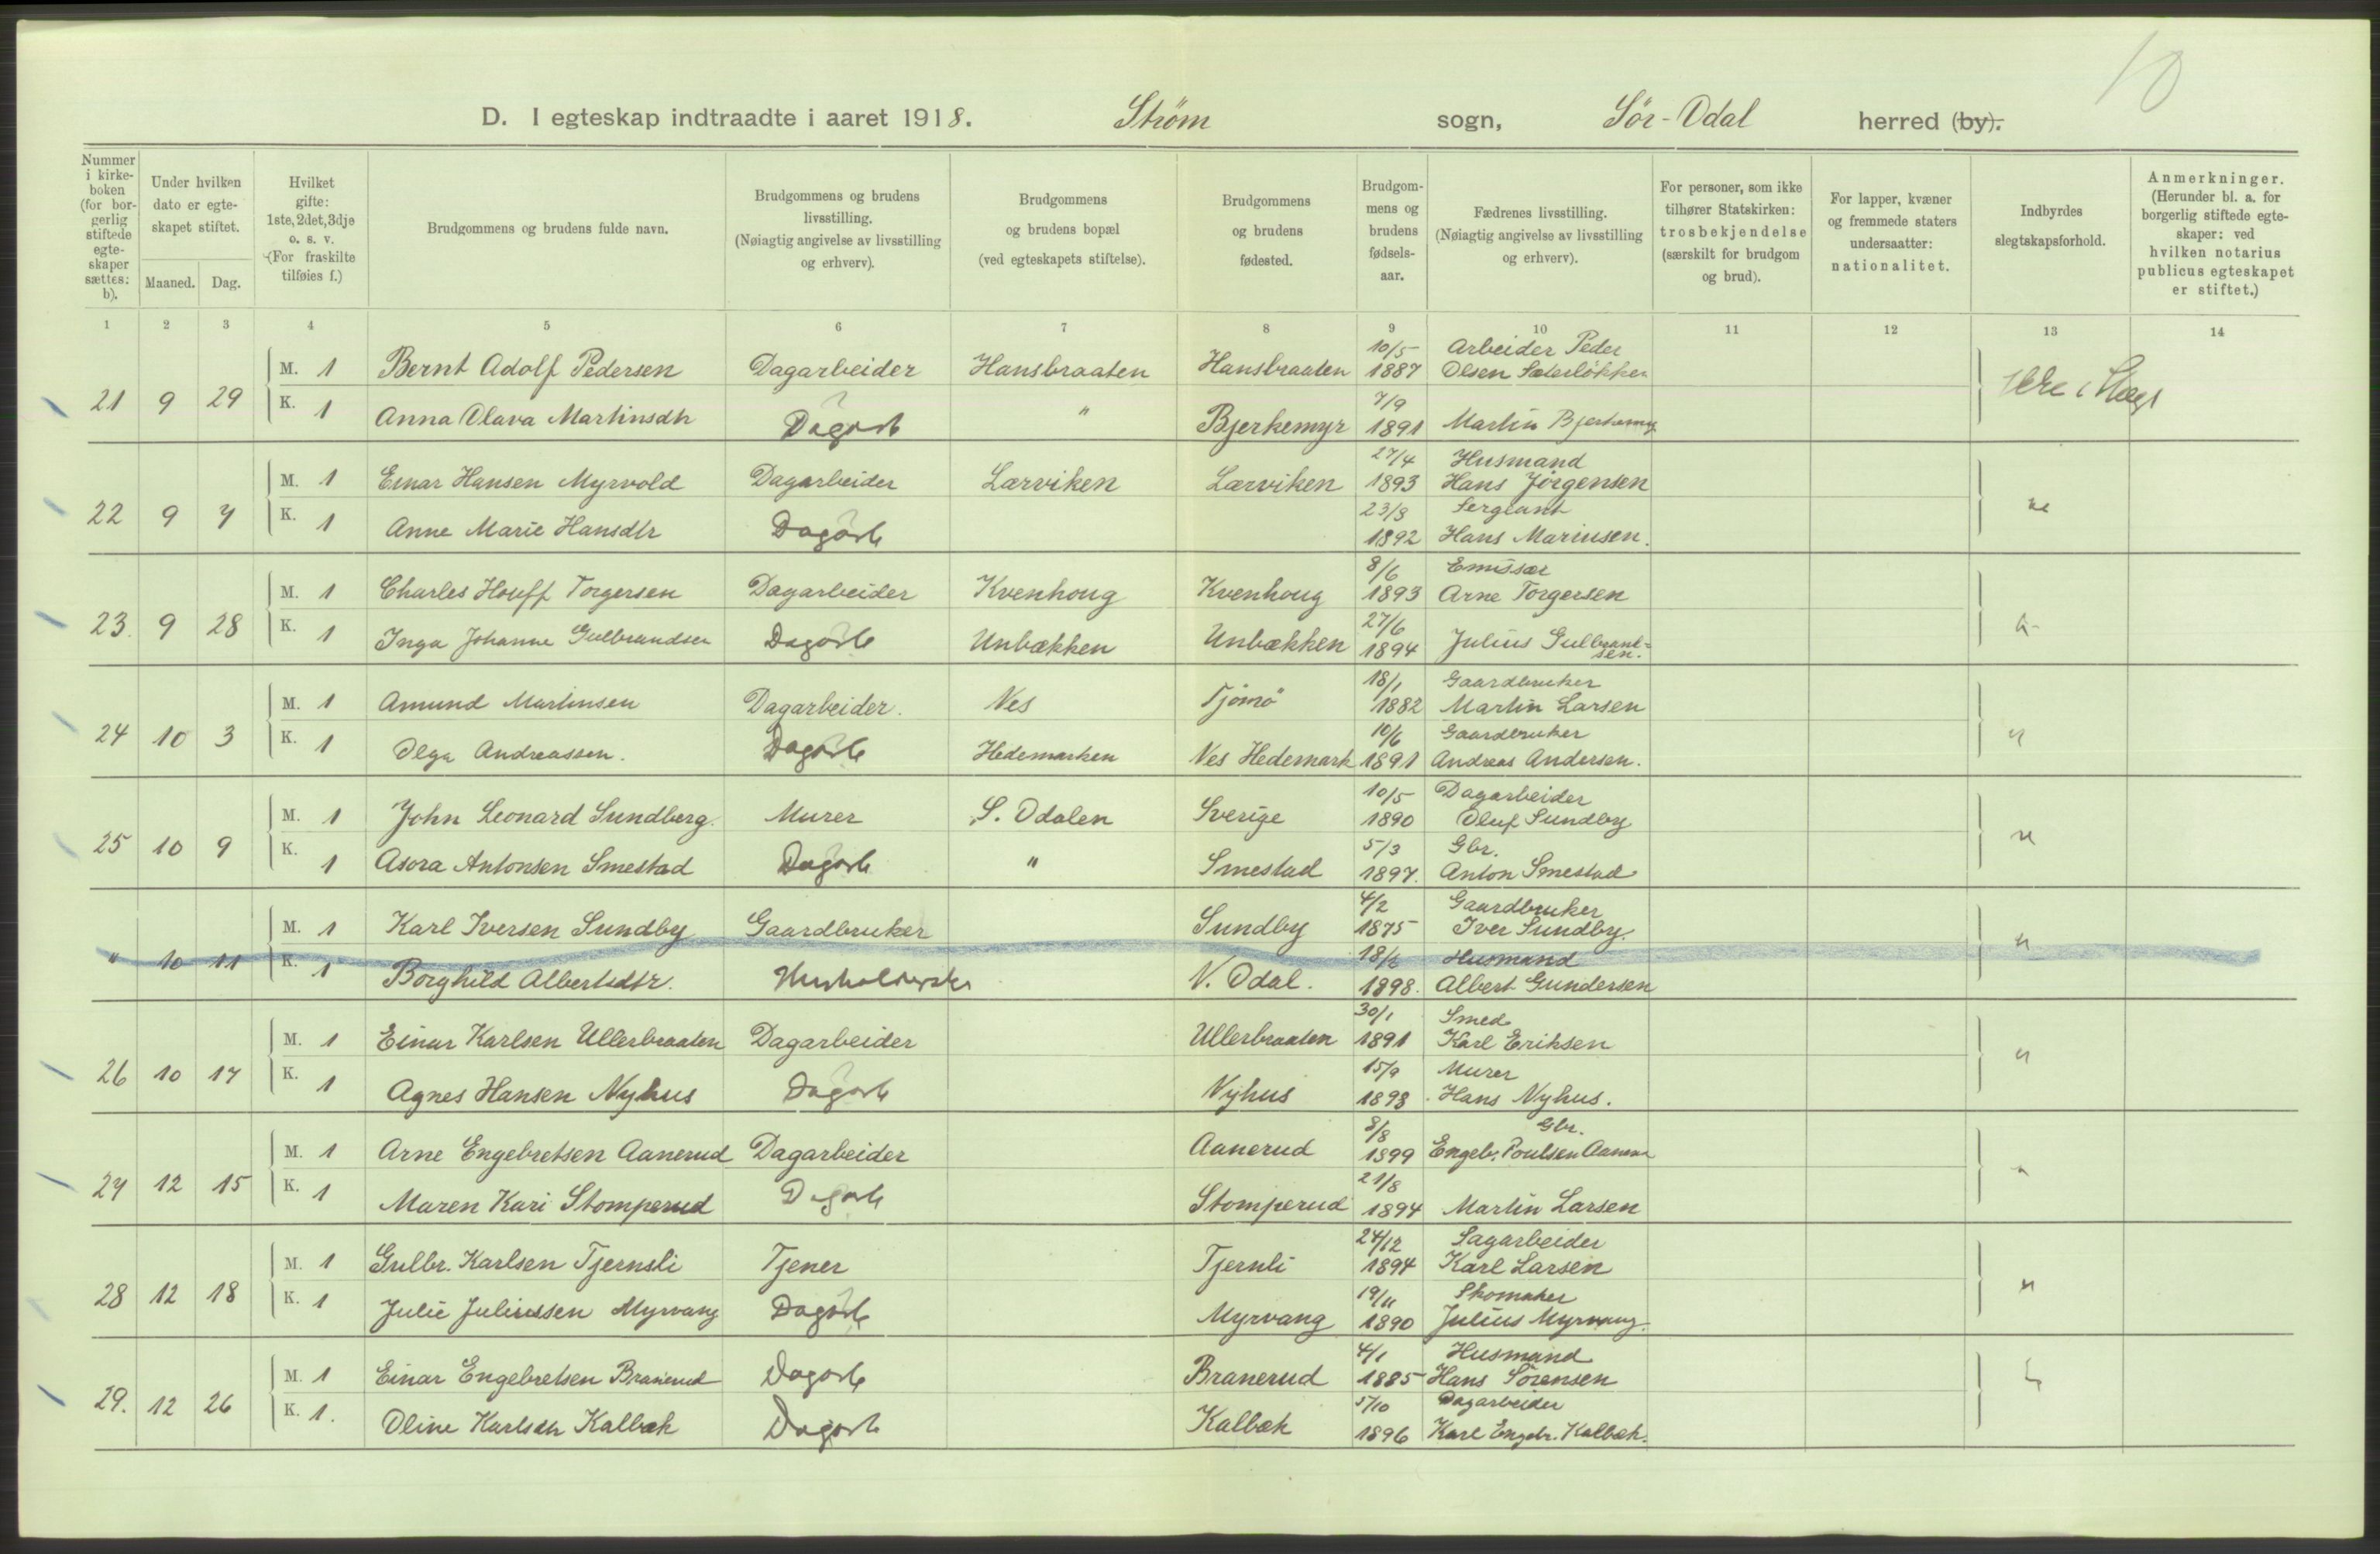 10
D. I egteskap indtraadte i aaret 1918. Strøm sogn, Sör-Odal herred (by).
Nummer i kirkeboken (for borgerlig stiftede egteskaper sættes: b).
Under hvilken dato er egteskapet stiftet.
Maaned. Dag.
Hvilket gifte: 1ste, 2det, 3dje o. s. v. (For fraskilte tilføies f.)
Brudgommens og brudens fulde navn.
Brudgommens og brudens livsstilling. (Nøiagtig angivelse av livsstilling og erhverv).
Brudgommens og brudens bopæl (ved egteskapets stiftelse).
Brudgommens og brudens fødested.
Brudgommens og brudens fødselsaar.
Fædrenes livsstilling. (Nøiagtig angivelse av livsstilling og erhverv).
For personer, som ikke tilhører Statskirken: trosbekjendelse (særskilt for brudgom og brud).
For lapper, kvæner og fremmede staters undersaatter: nationalitet.
Indbyrdes slegtskapsforhold.
Anmerkninger. (Herunder bl. a. for borgerlig stiftede egteskaper: ved hvilken notarius publicus egteskapet er stiftet.)
1 2 3 4 5 6 7 8 9 10 11 12 13 14
21 9 29 M. 1 Bernt Adolf Pedersen Dagarbeider Hansbraaten Hansbraaten 10/5 1887 Arbeider Peder Olsen Sæterløkken
K. 1 Anna Olava Martinsdtr " Bjerkemyr 7/9 1891 Martin Bjerkemyr
22 9 7 M. 1 Einar Hansen Myrvold Dagarbeider Lærviken Lærviken 27/4 1893 Husmand Hans Jörgensen
K. 1 Anne Marie Hansdtr 23/8 1892 Sergeant Hans Mariusen.
23. 9 28 M. 1 Charles Houff Torgersen Dagarbeider Kvenhoug Kvenhoug 8/6 1893 Emissær Arne Torgersen
K. 1 Inga Johanne Gulbrandsen Unbækken Unbækken 27/6 1894 Julius Gulbrandsen.
24 10 3 M. 1 Amund Martinsen Dagarbeider. Ves Tjömö 18/1 1882 Gaardbruker Martin Larsen
K. 1 Olga Andreassen. Hedemarken Ves Hedemark 10/6 1891 Gaardbruker Andreas Andersen.
25 10 9 M. 1 John Leonard Sundberg. Murer S. Odalen Sverige 10/5 1890 Dagarbeider Oluf Sundby
K. 1 Asora Antonsen Smestad " Smestad 5/3 1897. Gbr. Anton Smestad
" 10 11 M. 1 Karl Iversen Sundby Gaardbruker Sundby 4/2 1875 Gaardbruker Iver Sundby.
K. 1 Borghild Albertsdtr. N. Odal. 18/6 1898. Husmand Albert Gundersen
26 10 17 M. 1 Einar Karlsen Ullerbraaten Dagarbeider Ullerbraaten 30/1 1891 Smed Karl Eriksen
K. 1 Agnes Hansen Nyhus Nyhus 15/9 1898. Murer Hans Nyhus.
27 12 15 M. 1 Arne Engebretsen Aanerud Dagarbeider Aanerud 8/8 1899 Gbr. Engebr. Poulsen Aanerud
K. 1 Maren Kari Stomperud Stomperud 21/8 1894 Martin Larsen
28 12 18 M. 1 Gulbr. Karlsen Tjernsli Tjener Tjernli 24/12 1894 Sagarbeider Karl Larsen
K. 1 Julie Juliussen Myrvang Myrvang 19/11 1890 Skomaker Julius Myrvang.
29. 12 26 M. 1 Einar Engebretsen Branerud Branerud 4/1 1885 Husmand Hans Sörensen
K. 1. Oline Karlsdtr Kalbæk Kalbæk 5/10 1896 Dagarbeider Karl Engebr. Kalbæk.